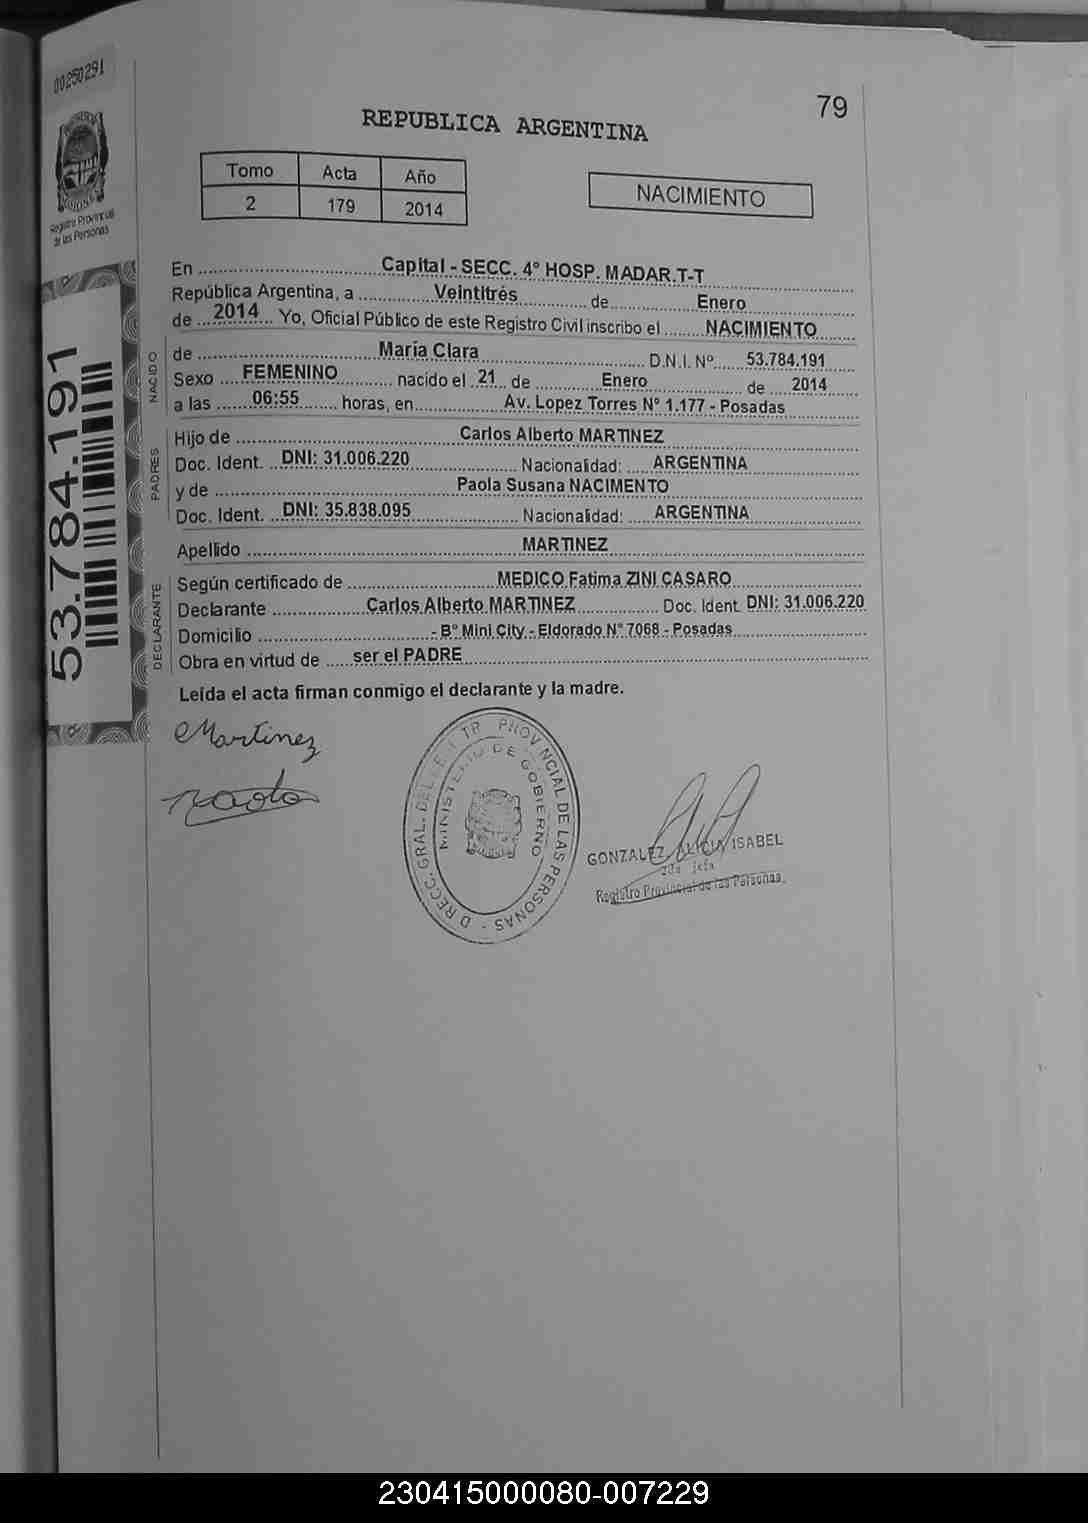 00250291
79
REPUBLICA ARGENTINA
Tomo Acta Año
2 179 2014
NACIMIENTO
Registro Provincial
de las Personas
53.784.191
En Capital - SECC. 4º HOSP. MADAR.T-T
República Argentina, a Veintitrés de Enero
de 2014 Yo, Oficial Público de este Registro Civil inscribo el NACIMIENTO
NACIDO
de María Clara D.N.I. Nº 53.784.191
Sexo FEMENINO nacido el 21 de Enero de 2014
a las 06:55 horas, en Av. Lopez Torres N° 1.177 - Posadas
PADRES
Hijo de Carlos Alberto MARTINEZ
Doc. Ident. DNI: 31.006.220 Nacionalidad: ARGENTINA
y de Paola Susana NACIMENTO
Doc. Ident. DNI: 35.838.095 Nacionalidad: ARGENTINA
Apellido MARTINEZ
DECLARANTE
Según certificado de MEDICO Fatima ZINI CASARO
Declarante Carlos Alberto MARTINEZ Doc. Ident. DNI: 31.006.220
Domicilio - Bº Mini City - Eldorado N° 7068 - Posadas
Obra en virtud de ser el PADRE
Leída el acta firman conmigo el declarante y la madre.
Martinez
Paola
PROVINCIAL DE LAS PERSONAS
MINISTERIO DE GOBIERNO
GONZALEZ ALICIA ISABEL
2da jefa
Registro Provincial de las Personas
230415000080-007229